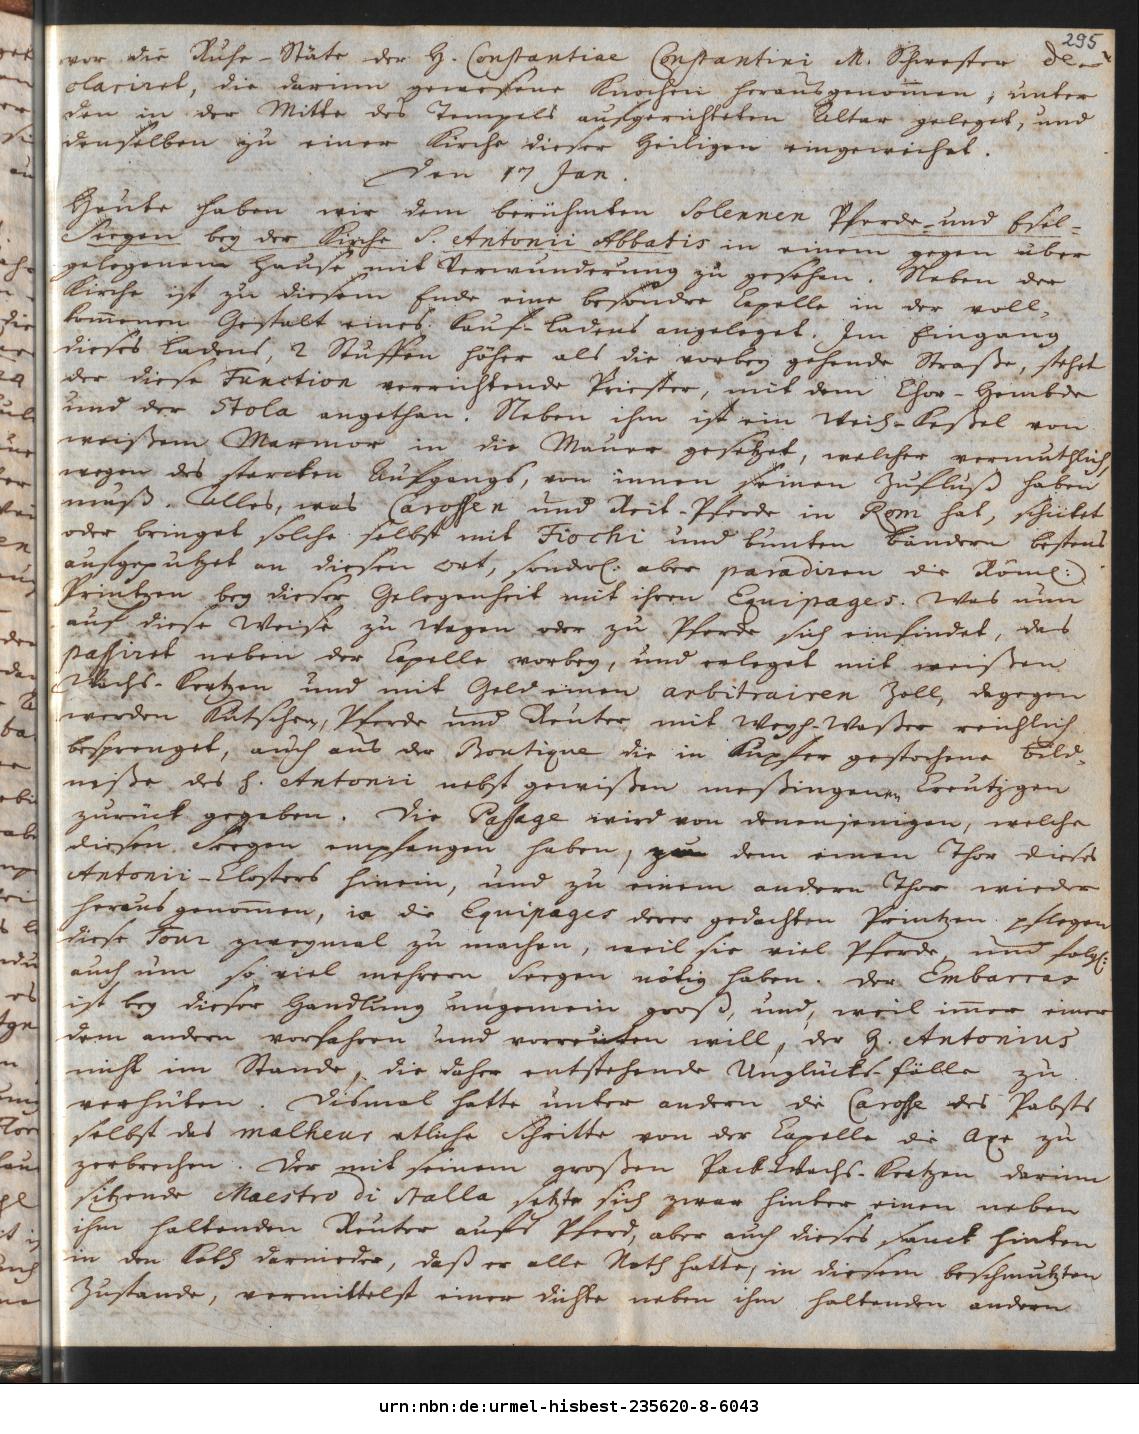 295
vor die Ruhe-Stäte der H. Constantiae Constantini M. Schwester de-
clariret, die darinn gewesene Knochen herausgenom̅en, unter
den in der Mitte des Tempels aufgerichteten Altar geleget, und
denselben zu einer Kirche dieser Heiligen eingeweichet.
Den 17 Jan.
Heute haben wir dem berühmten Solennen Pferde- und Esel-
Seegen bey der Kirche S. Antonii Abbatis in einem gegen über
gelegenem Hause mit Verwunderung zu gesehen. Neben der
Kirche ist zu diesem Ende eine besondre Capelle in der voll-
kom̅enen Gestalt eines Kauf-Ladens angeleget. Im Eingang
dieses Ladens, 2 Stuffen höher als die vorbey gehende Straße, stehet
der diese Function verrichtende Priester, mit dem Chor-Hembde
und der Stola angethan. Neben ihm ist ein Weih-Keßel von
weißem Marmor in die Mauer gesetzet, welcher vermuthlich
wegen des starcken Aufgangs, von innen seinen Zufluß haben
muß. Alles, was Carossen und Reit-Pferde in Rom hat, schicket
oder bringet solche selbst mit Fiochi und bunten Bändern bestens
aufgeputzet an diesen Ort, sonderl: aber paradiren die Röml:
Printzen bey dieser Gelegenheit mit ihren Equipages. Was nun
auf diese Weise zu Wagen oder zu Pferde sich einfindet, das
passiret neben der Capelle vorbey, und erleget mit weißen
Wachs-Kertzen und mit Geld einen arbitrairen Zoll, dagegen
werden Kutschen, Pferde und Reuter mit Weyh-Waßer reichlich
besprenget, auch aus der Boutique die in Kupfer gestochene Bild-
neße des H. Antonii nebst gewißen meßingenen Creutzgen
zurück gegeben. Die Passage wird von denenjenigen, welche
diesen Seegen empfangen haben, zu dem einen Thor dieses
Antonii-Closters hinein, und zu einem andern Thor wieder
heraus genom̅en, ja die Equipages derer gedachten Printzen pflegen
diese Tour zweymal zu machen, weil sie viel Pferde, und folgl:
auch um so viel mehrern Seegen nötig haben. Der Embarras
ist bey dieser Handlung ungemein groß, und, weil im̅er einer
dem andern vorfahren und vorreuten will, der H. Antonius
nicht im Stande, die daher entstehende Unglücks-Fälle zu
verhüten. Dismal hatte unter andern die Carosse des Pabsts
selbst das malheur etliche Schritte von der Capelle die Axe zu
zerbrechen. Der mit seinem großen Pack Wachs-Kertzen darinn
sitzende Maestro di Stalla setzte sich zwar hinter einen neben
ihm haltenden Reuter aufs Pferd, aber auch dieses sanck hinten
in den Koth darnieder, daß er alle Noth hatte, in diesem beschmutzten
Zustande, vermittelst einer dichte neben ihm haltenden andern
urn:nbn:de:urmel-hisbest-235620-8-6043